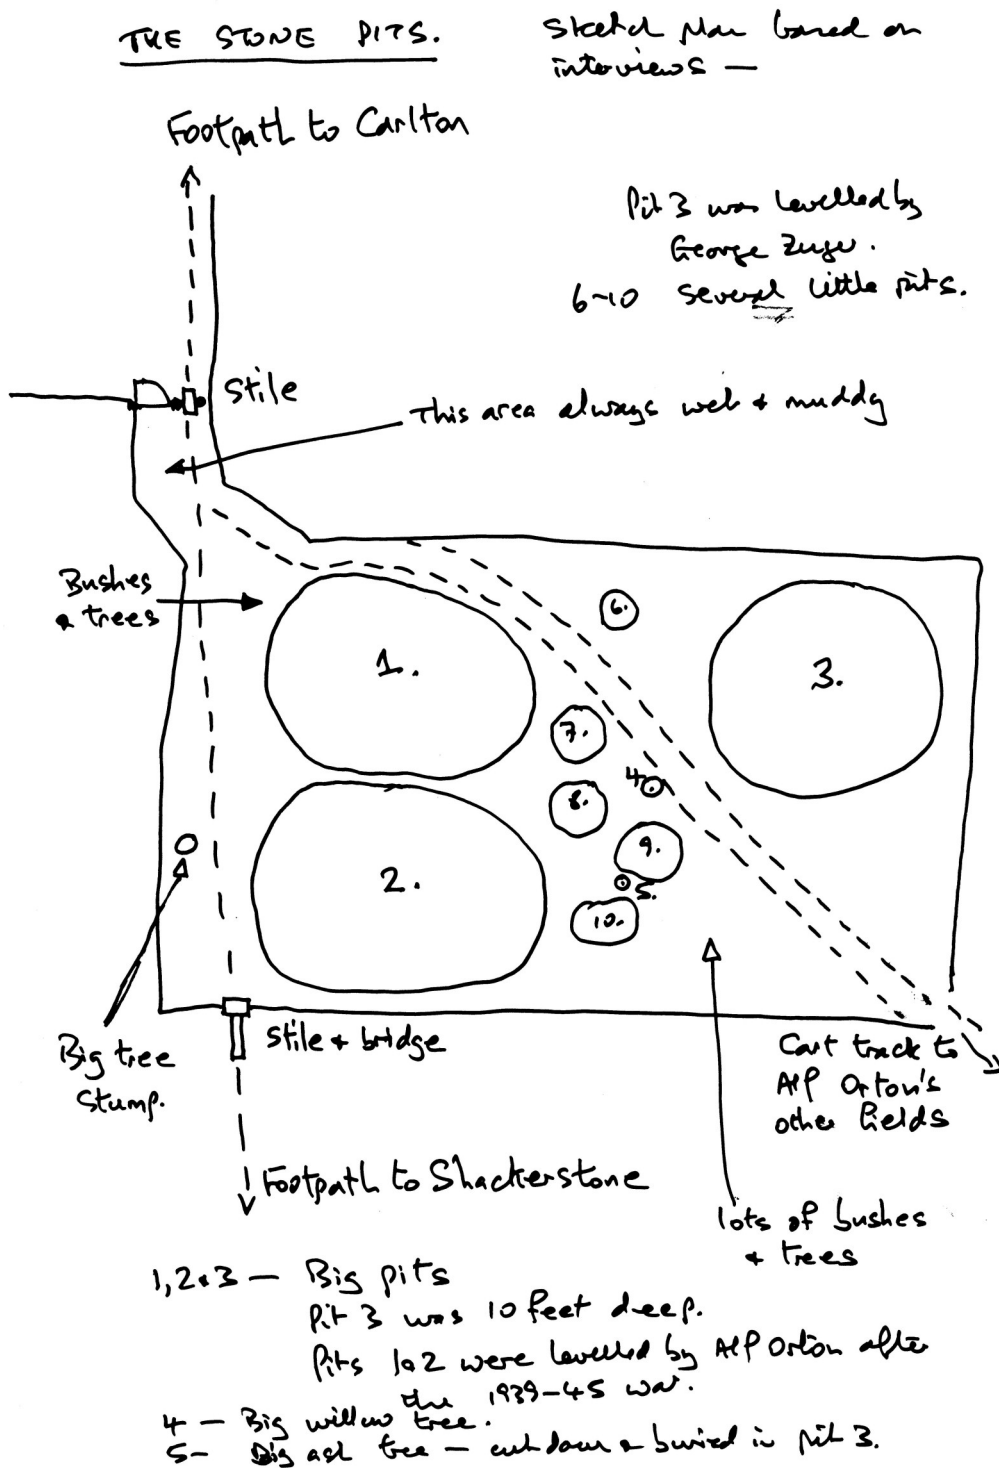 THE STONE PITS.
Sketch plan based on
interviews —
Footpath to Carlton
Pit 3 was levelled by
George
6-10 several little pits.
Stile
This area always wet & muddy
Bushes
& trees
1.
2.
3.
6.
7.
4
8.
9.
5.
10.
Big tree
Stump.
Stile & bridge
Cart track to
Alf Orton's
other fields
Footpath to Shackerstone
lots of bushes
& trees
1,2&3 — Big pits
Pit 3 was 10 feet deep.
Pits 1&2 were levelled by Alf Orton after
the 1939-45 war.
4 — Big willow tree.
5 — Big ash tree — cut down & buried in pit 3.